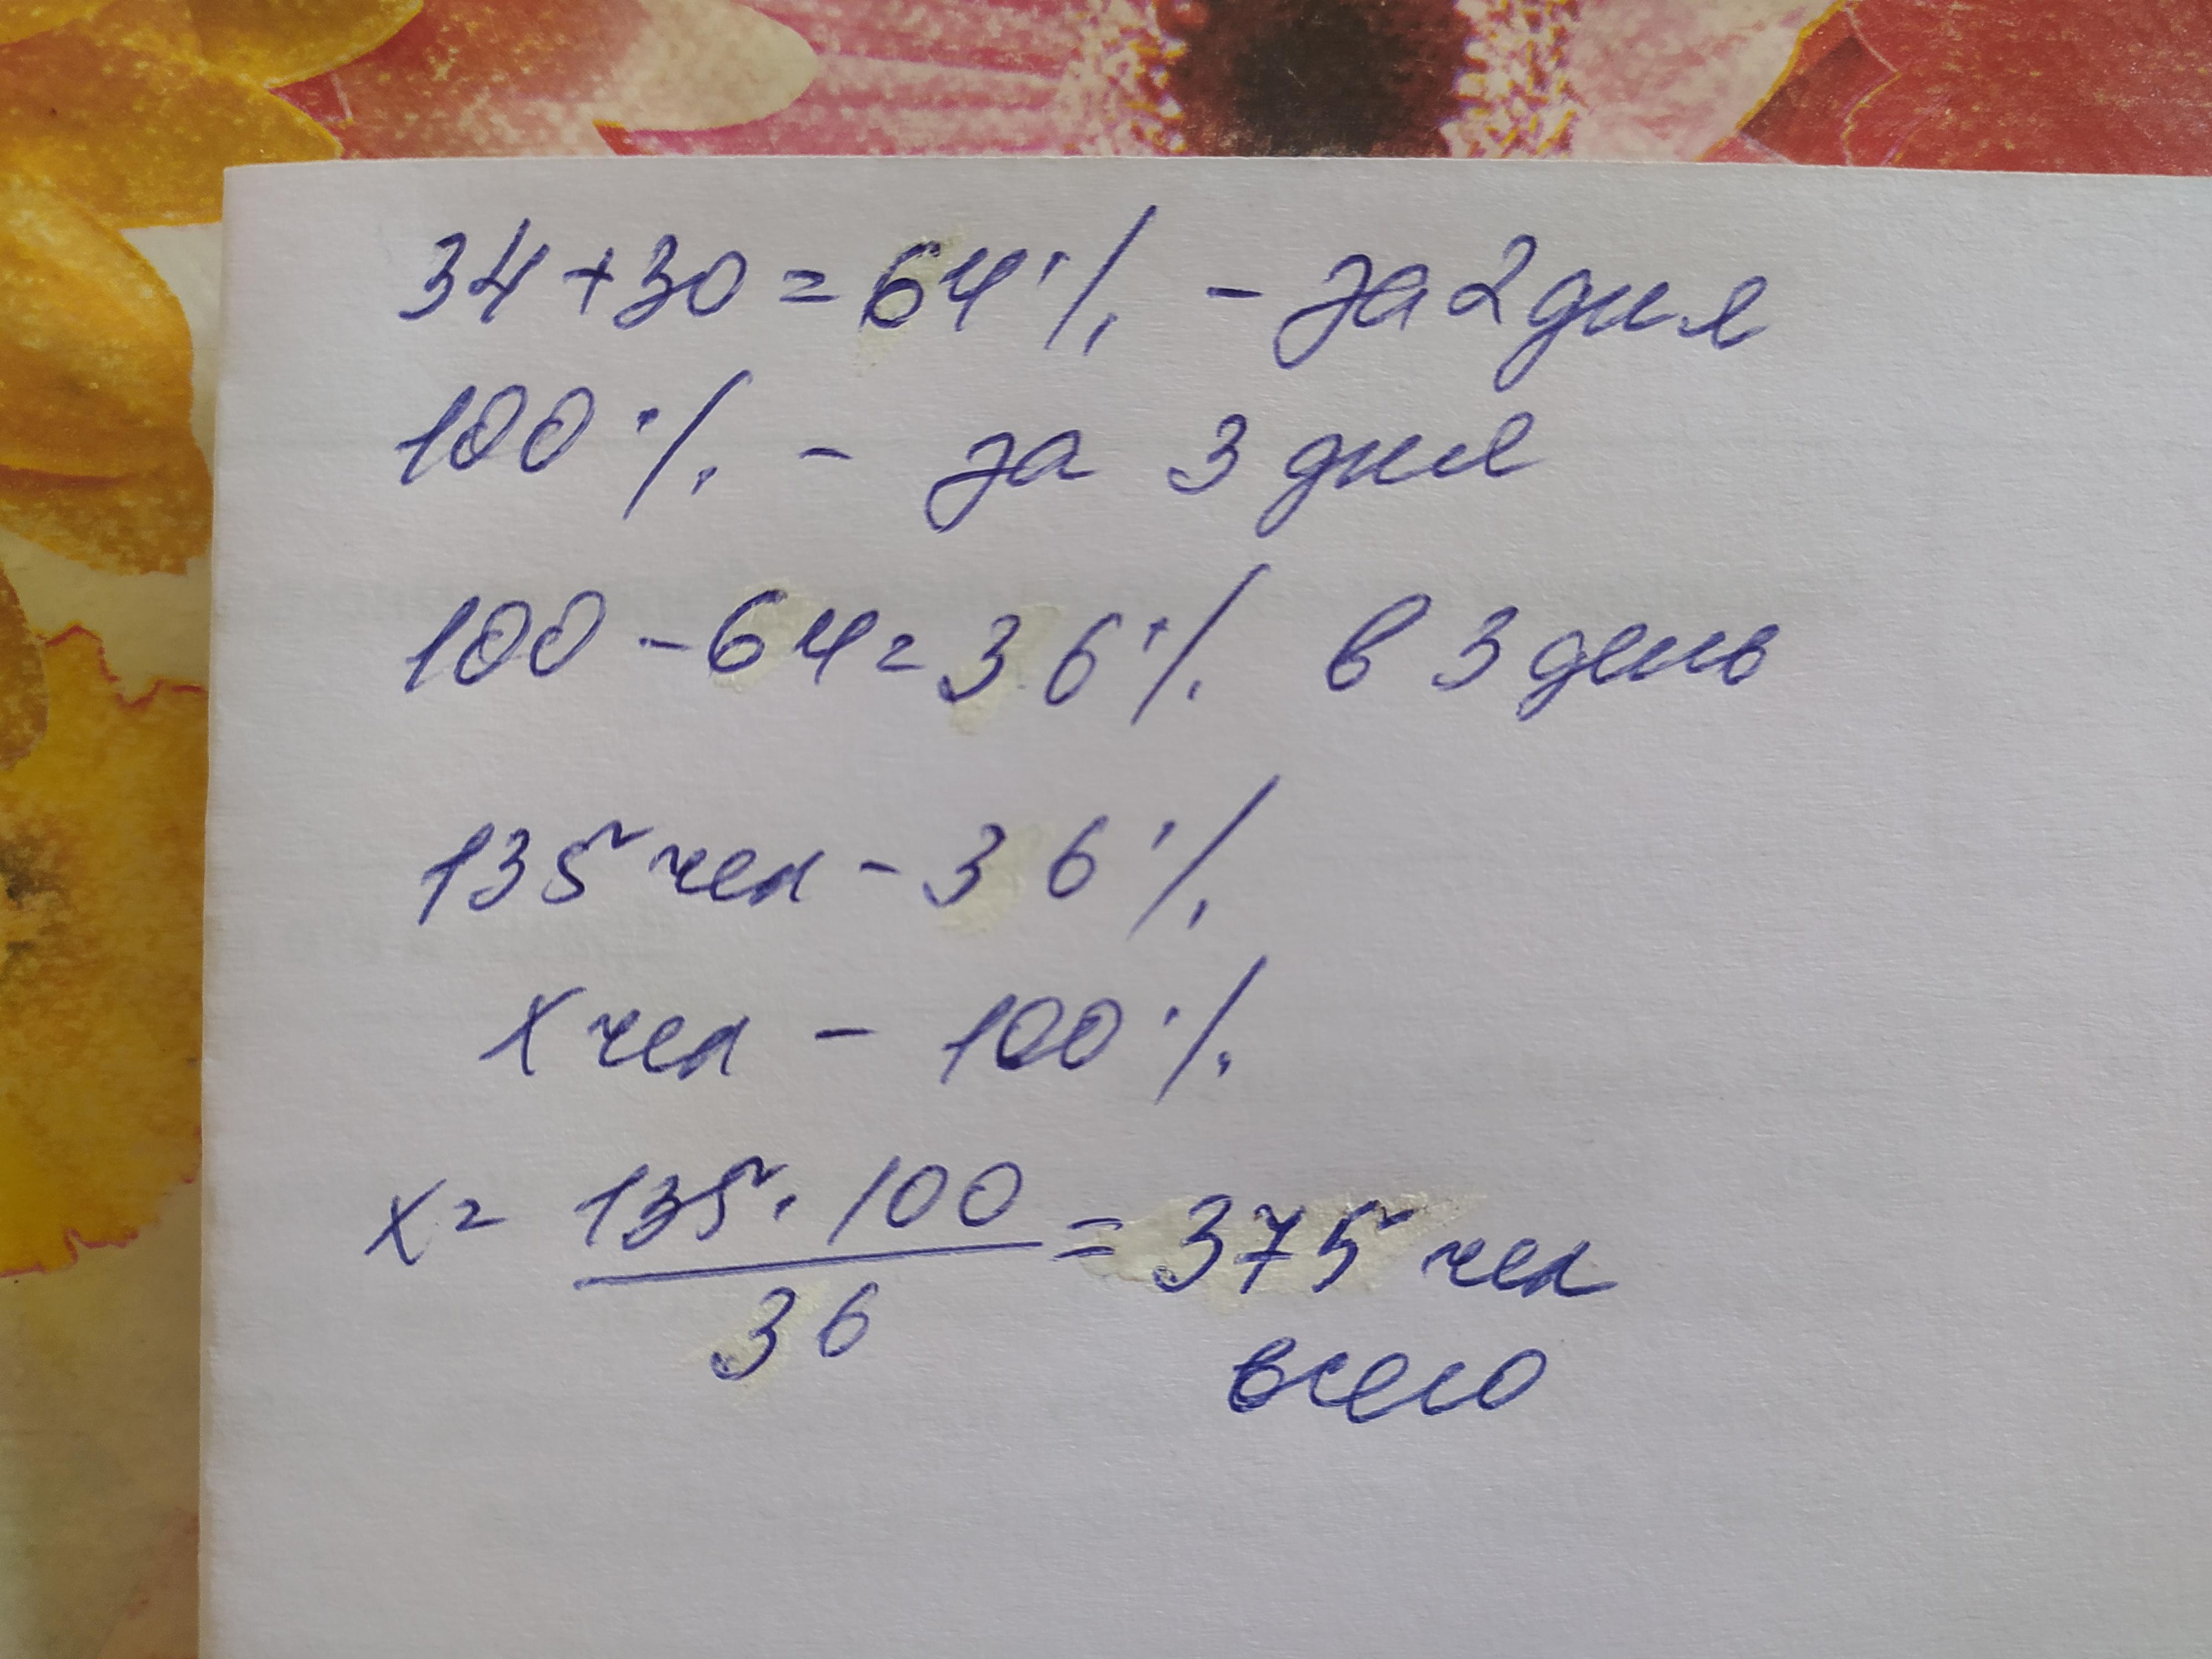 34+30=64% - за 2 дня
100% - за 3 дня
100-64=36% в 3 день
135 чел - 36%
x чел - 100%
x = 135 · 100 / 36 = 375 чел
всего